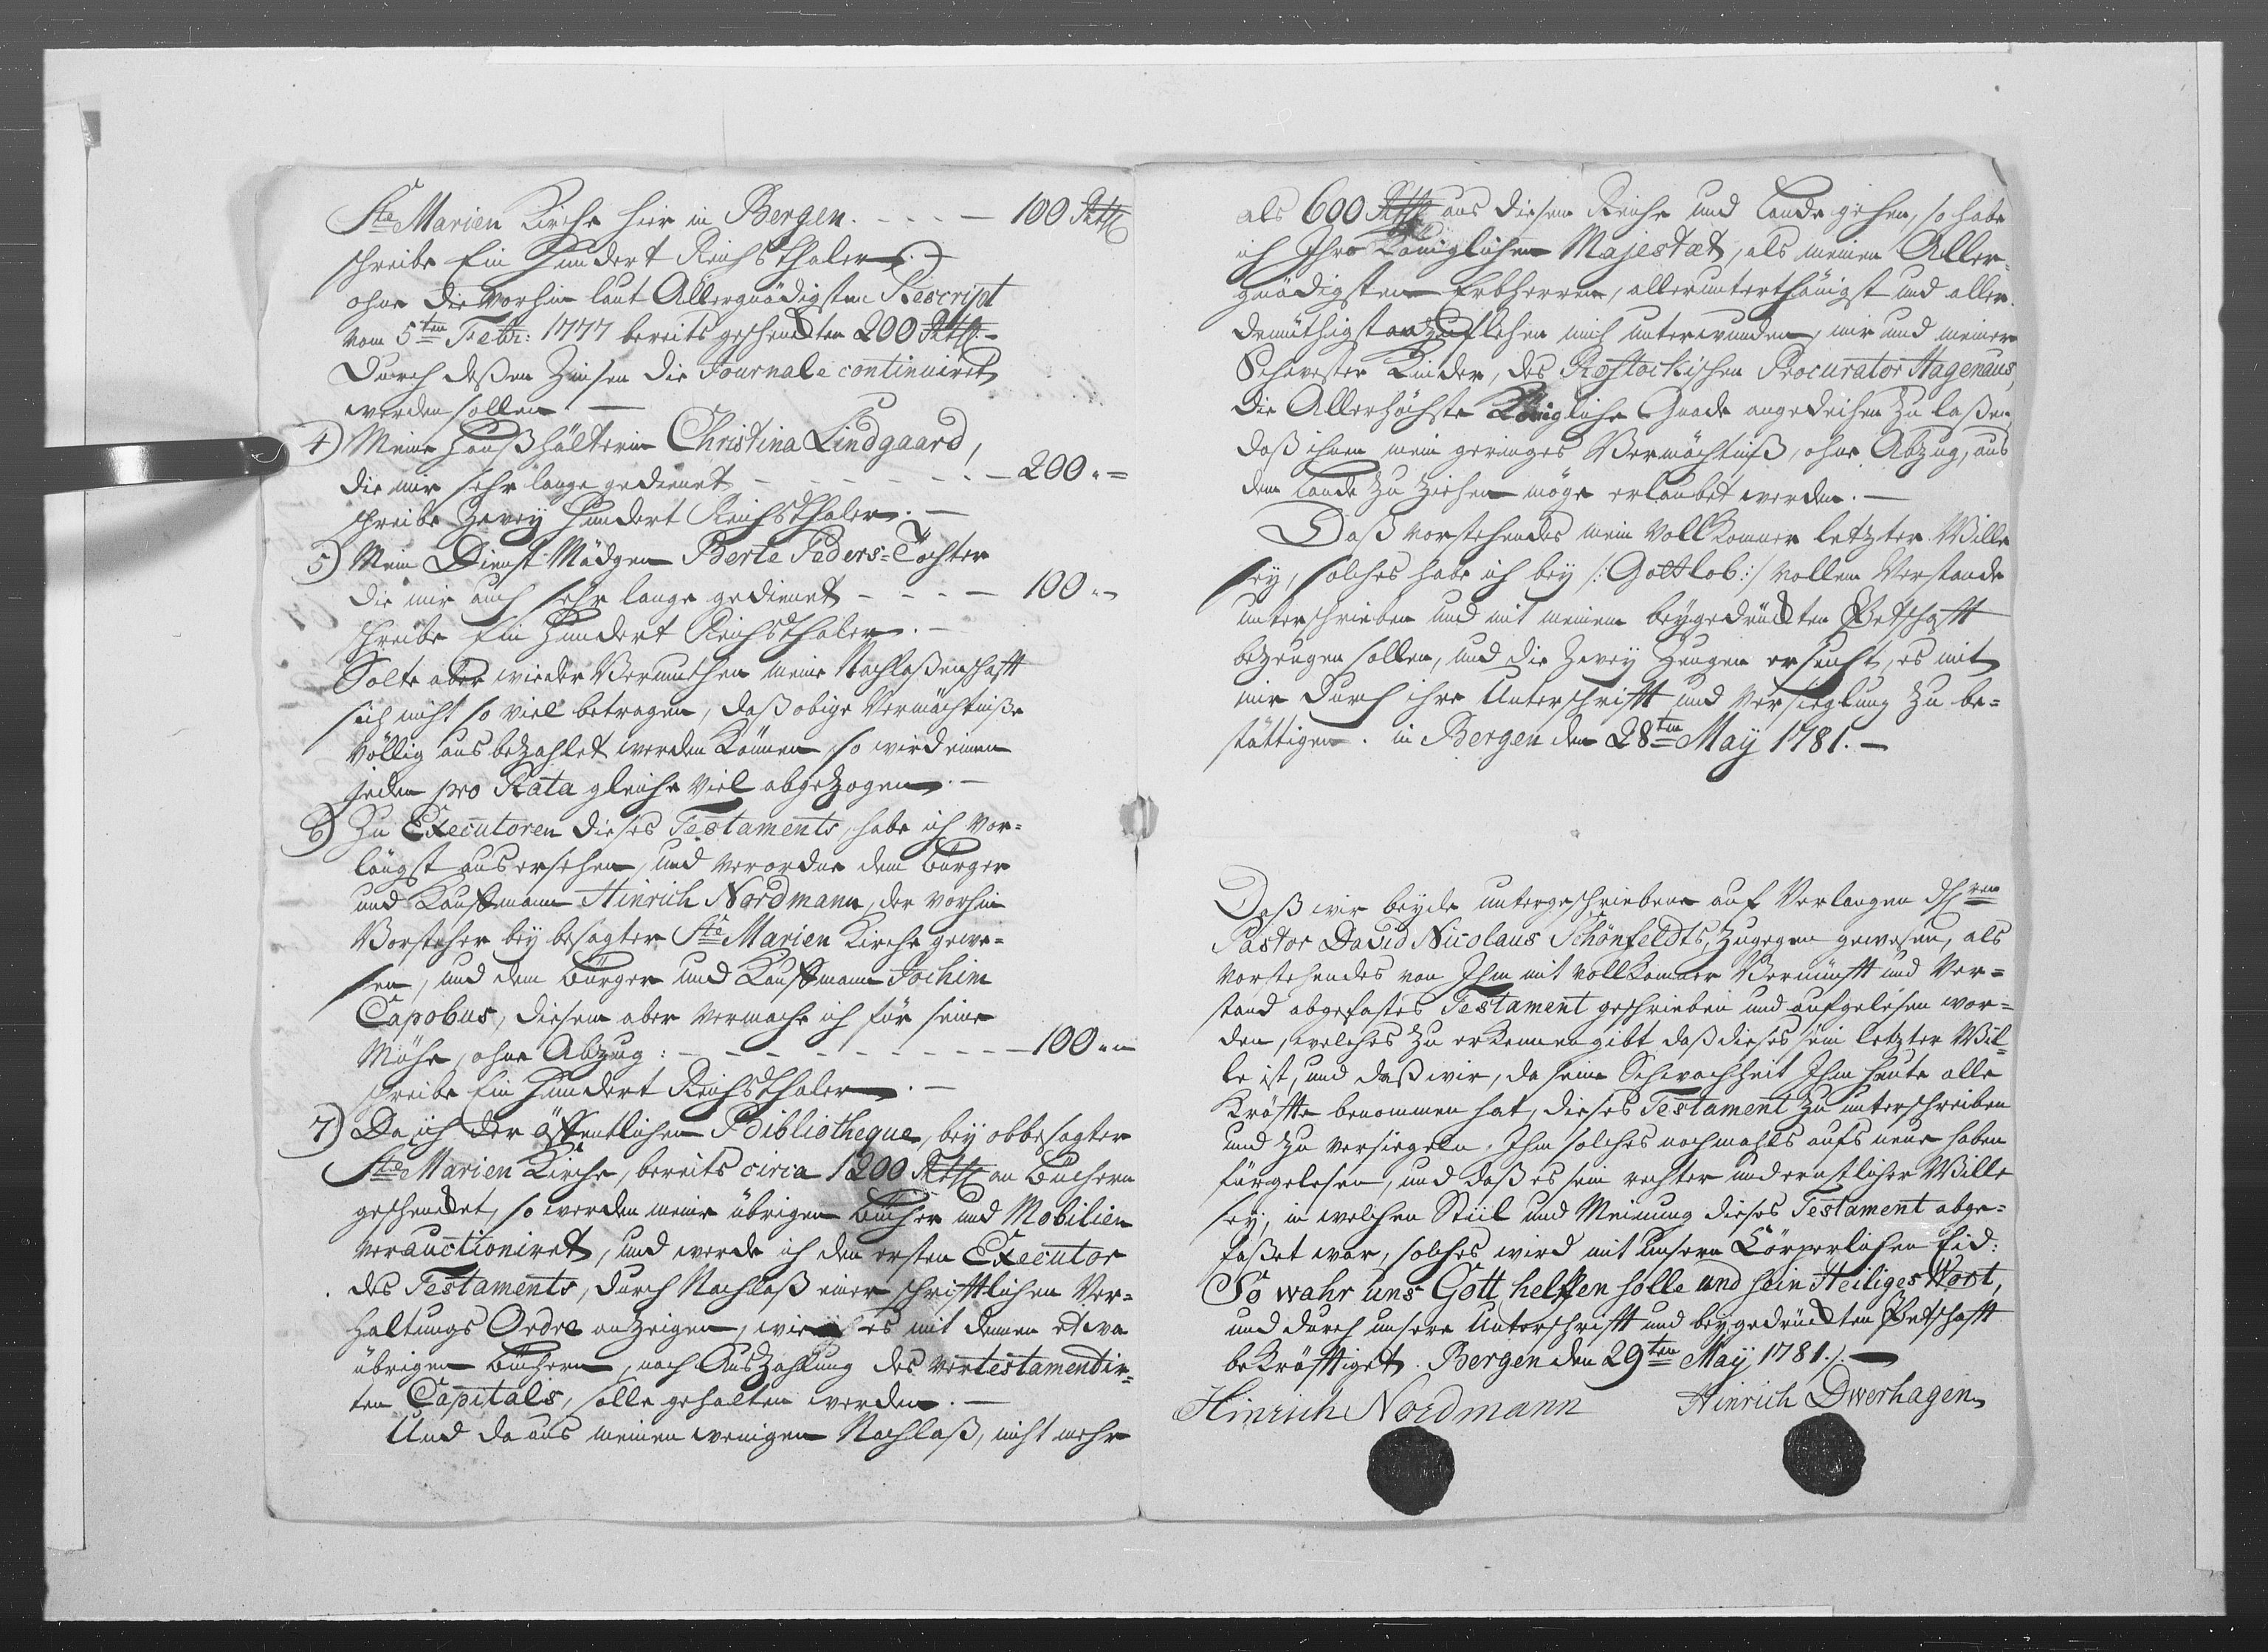 Ste Marien Kirche hier in Bergen. - - - - 100 Rthl
schreibe Ein Hundert Reichsthaler. -
ohne die vorhin laut Allergnädigsten Rescript
vom 5ten Febr: 1777 bereits geschenckten 200 Rthl. -
durch deßen Zinsen die Journale continuiret
werden sollen. -
4) Meine Haußhälterin Christina Lindgaard,
die mir sehr lange gedienet - - - - - - - 200 " =
schreibe Zwey Hundert Reichsthaler. -
5) Mein Dienst Mädgen Berte Peders-Tochter
die mir auch sehr lange gedienet - - - - 100 " -
schreibe Ein Hundert Reichsthaler. -
Solte aber wieder Vermuthen meine Nachlaßenschafft
sich nicht so viel betragen, daß obige Vermächtniße
völlig aus bezahlet werden können, so wird einen
jeden pro Rata gleiche viel abgezogen. -
6) Zu Executoren dieses Testaments, habe ich vor-
längst ausersehen, und verordne dem Bürger
und Kauffmann Hinrich Nordmann, der vorhin
Vorsteher bey besagter Ste Marien Kirche gewe-
sen, und dem Bürger und Kauffmann Jochim
Capobus, diesem aber vermache ich für seine
Mühe, ohne Abzug: - - - - - - - - - - 100 " =
schreibe Ein Hundert Reichsthaler. -
7) Da ich der öffentlichen Bibliotheque, bey obbesagter
Ste Marien Kirche, bereits circa 1200 Rthl an Büchern
geschencket, so werden meine übrigen Bücher und Mobilien
verauctioniret, und werde ich den ersten Executor
des Testaments, durch Nachlaß einer schrifftlichen Ver-
haltungs Ordre anzeigen, wie es mit denen etwa
übrigen Büchern, nach Auszahlung des vertestamentir-
ten Capitals, solle gehalten werden. -
Und da aus meinen wenigen Nachlaß, nicht mehr
als 600 Rthl aus diesem Reiche und Lande gehen, so habe
ich Ihro Königlichen Majestæt, als meinen Aller-
gnädigsten Erbherren, allerunterthänigst und aller-
demüthigst anzuflehen mich unterwunden, mir und meiner
Schwester Kinder, des Rostockischen Procurator Hagenaus,
die Allerhöchste Königliche Gnade angedeihen zu laßen,
daß ihnen mein geringes Vermächtniß, ohne Abzug, aus
dem Lande zu ziehen möge erlaubet werden. -
Daß vorstehendes mein vollkommer letzter Wille
sey, solches habe ich bey /: Gottlob :/ vollem Verstande
unterschrieben und mit meinem beygedrückten Petschafft
bezeugen sollen, und die zwey Zeugen ersucht, es mit
mir durch ihre Unterschrifft und Versieglung zu be-
stättigen. in Bergen den 28ten May 1781. -
Daß wir beyde untergeschriebene auf Verlangen
Pastor David Nicolaus Schönfeldts, zugegen gewesen, als
vorstehendes von Ihm mit vollkommer Vernunfft und Ver-
stand abgefastes Testament geschrieben und aufgelesen wor-
den, welches zu erkennen gibt daß dieses sein letzter Wil-
le ist, und daß wir, da seine Schwachheit Ihm heute alle
Kräffte benommen hat, dieses Testament zu unterschreiben
und zu versiegeln, Ihm solches nochmahls aufs neue haben
fürgelesen, und daß es sein rechter und ernstlicher Wille
sey, in welchen Stiil und Meinung dieses Testament abge-
faßet war, solches wird mit unsern Körperlichen Eid:
So wahr uns Gott helffen solle und sein Heiliges Wort,
und durch unsere Unterschrifft und beygedrückten Petschafft
bekräfftiget. Bergen den 29ten May 1781. -
Hinrich Nordmann Hinrich Dwerhagen